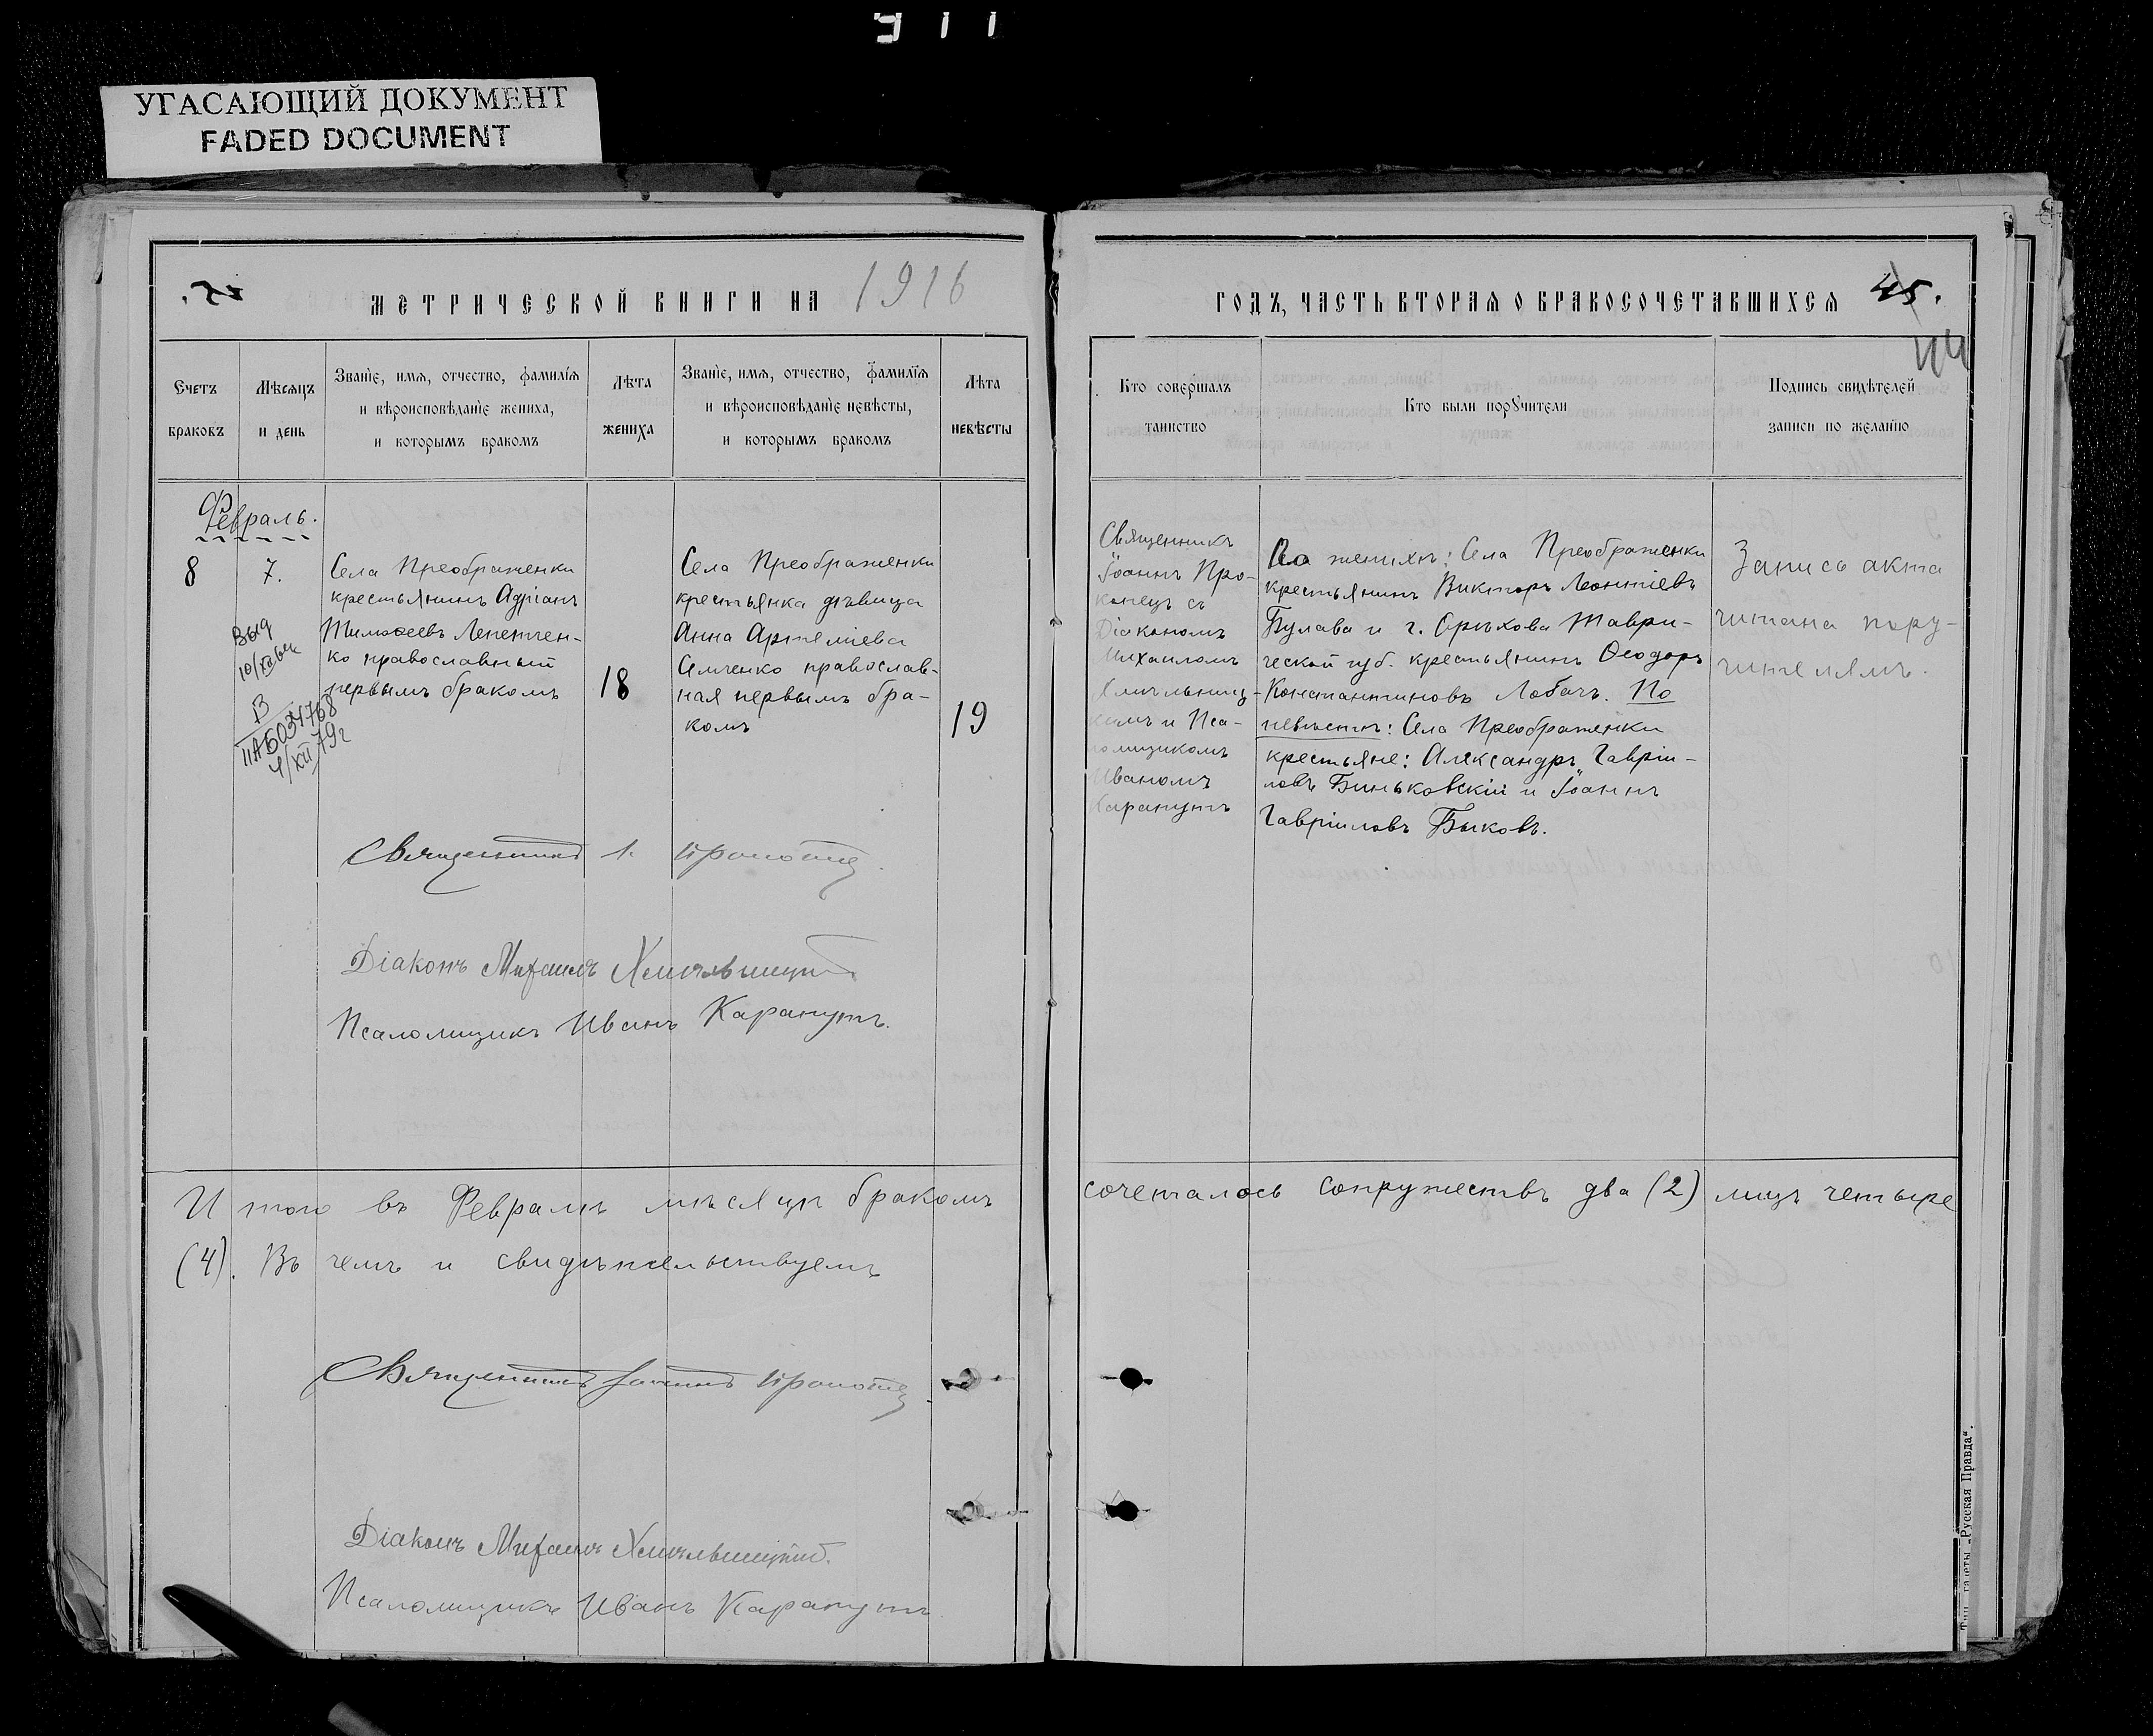 911
УГАСАЮЩИЙ ДОКУМЕНТ
FADED DOCUMENT
МЕТРИЧЕСКОЙ КНИГИ НА 1916
Счетъ браковъ
Мѣсяцъ и день
Званіе, имя, отчество, фамилія
и вѣроисповѣданіе жениха,
и которымъ бракомъ
Лѣта жениха
Званіе, имя, отчество, фамилія
и вѣроисповѣданіе невѣсты,
и которымъ бракомъ
Лѣта невѣсты
Февраль.
8
7.
Выд
В
IIАБ034768
4/XII 79г
Села Преображенки
крестьянинъ Адріанъ
Тимоѳеевъ Лепетчен-
ко православный
первымъ бракомъ
18
Села Преображенки
крестьянка дѣвица
Анна Артеміева
Симченко православ-
ная первымъ бра-
комъ
19
Священникъ І. Прокопецъ
Діаконъ Михаилъ Хмѣльницкій
Псаломщикъ Иванъ Карапутъ.
Итого въ Февралѣ мѣсяцѣ бракомъ
(4). Въ чемъ и свидѣтельствуемъ
Священникъ Іоаннъ Прокопецъ
Діаконъ Михаилъ Хмѣльницкій.
Псаломщикъ Иванъ Карапутъ
ГОДЪ, ЧАСТЬ ВТОРАЯ О БРАКОСОЧЕТАВШИХСЯ
45.
44
Кто совершалъ
таинство
Кто были поручители
Подпись свидѣтелей
записи по желанію
Священникъ
Іоаннъ Про-
копецъ съ
Діакономъ
Михаиломъ
Хмѣльниц-
кимъ и Пса-
ломщикомъ
Иваномъ
Карапутъ
По женихѣ: Села Преображенки
крестьянинъ Викторъ Леонтіевъ
Булава и г. Орѣхова Таври-
ческой губ. крестьянинъ Ѳеодоръ
Константиновъ Лобачъ. По
невѣстѣ: Села Преображенки
крестьяне: Александръ Гавріи-
ловъ Биньковскій и Іоаннъ
Гавріиловъ Быковъ.
Запись акта
читана пору-
чителямъ.
сочеталось супружествъ два (2) лицъ четыре
Тип. газеты „Русская Правда“.